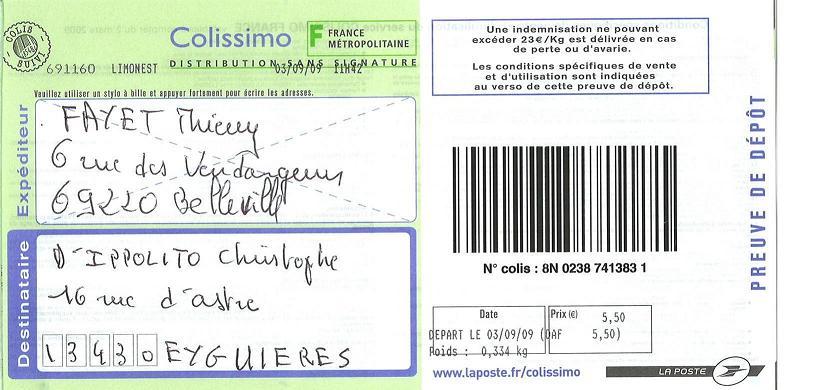 COLIS
SUIVI
Colissimo
F FRANCE
MÉTROPOLITAINE
DISTRIBUTION SANS SIGNATURE
691160 LIMONEST 03/09/09 11H42
Veuillez utiliser un stylo à bille et appuyer fortement pour écrire les adresses.
Expéditeur
FAYET Thierry
6 rue des Vendangeurs
69220 Belleville
Destinataire
D'IPPOLITO Christophe
16 rue d'astre
13430 EYGUIERES
Une indemnisation ne pouvant
excéder 23€/Kg est délivrée en cas
de perte ou d'avarie.
Les conditions spécifiques de vente
et d'utilisation sont indiquées
au verso de cette preuve de dépôt.
N° colis : 8N 0238 741383 1
Date Prix (€) 5,50
DEPART LE 03/09/09 (DAF 5,50)
Poids : 0,334 kg
www.laposte.fr/colissimo
LA POSTE
PREUVE DE DÉPÔT